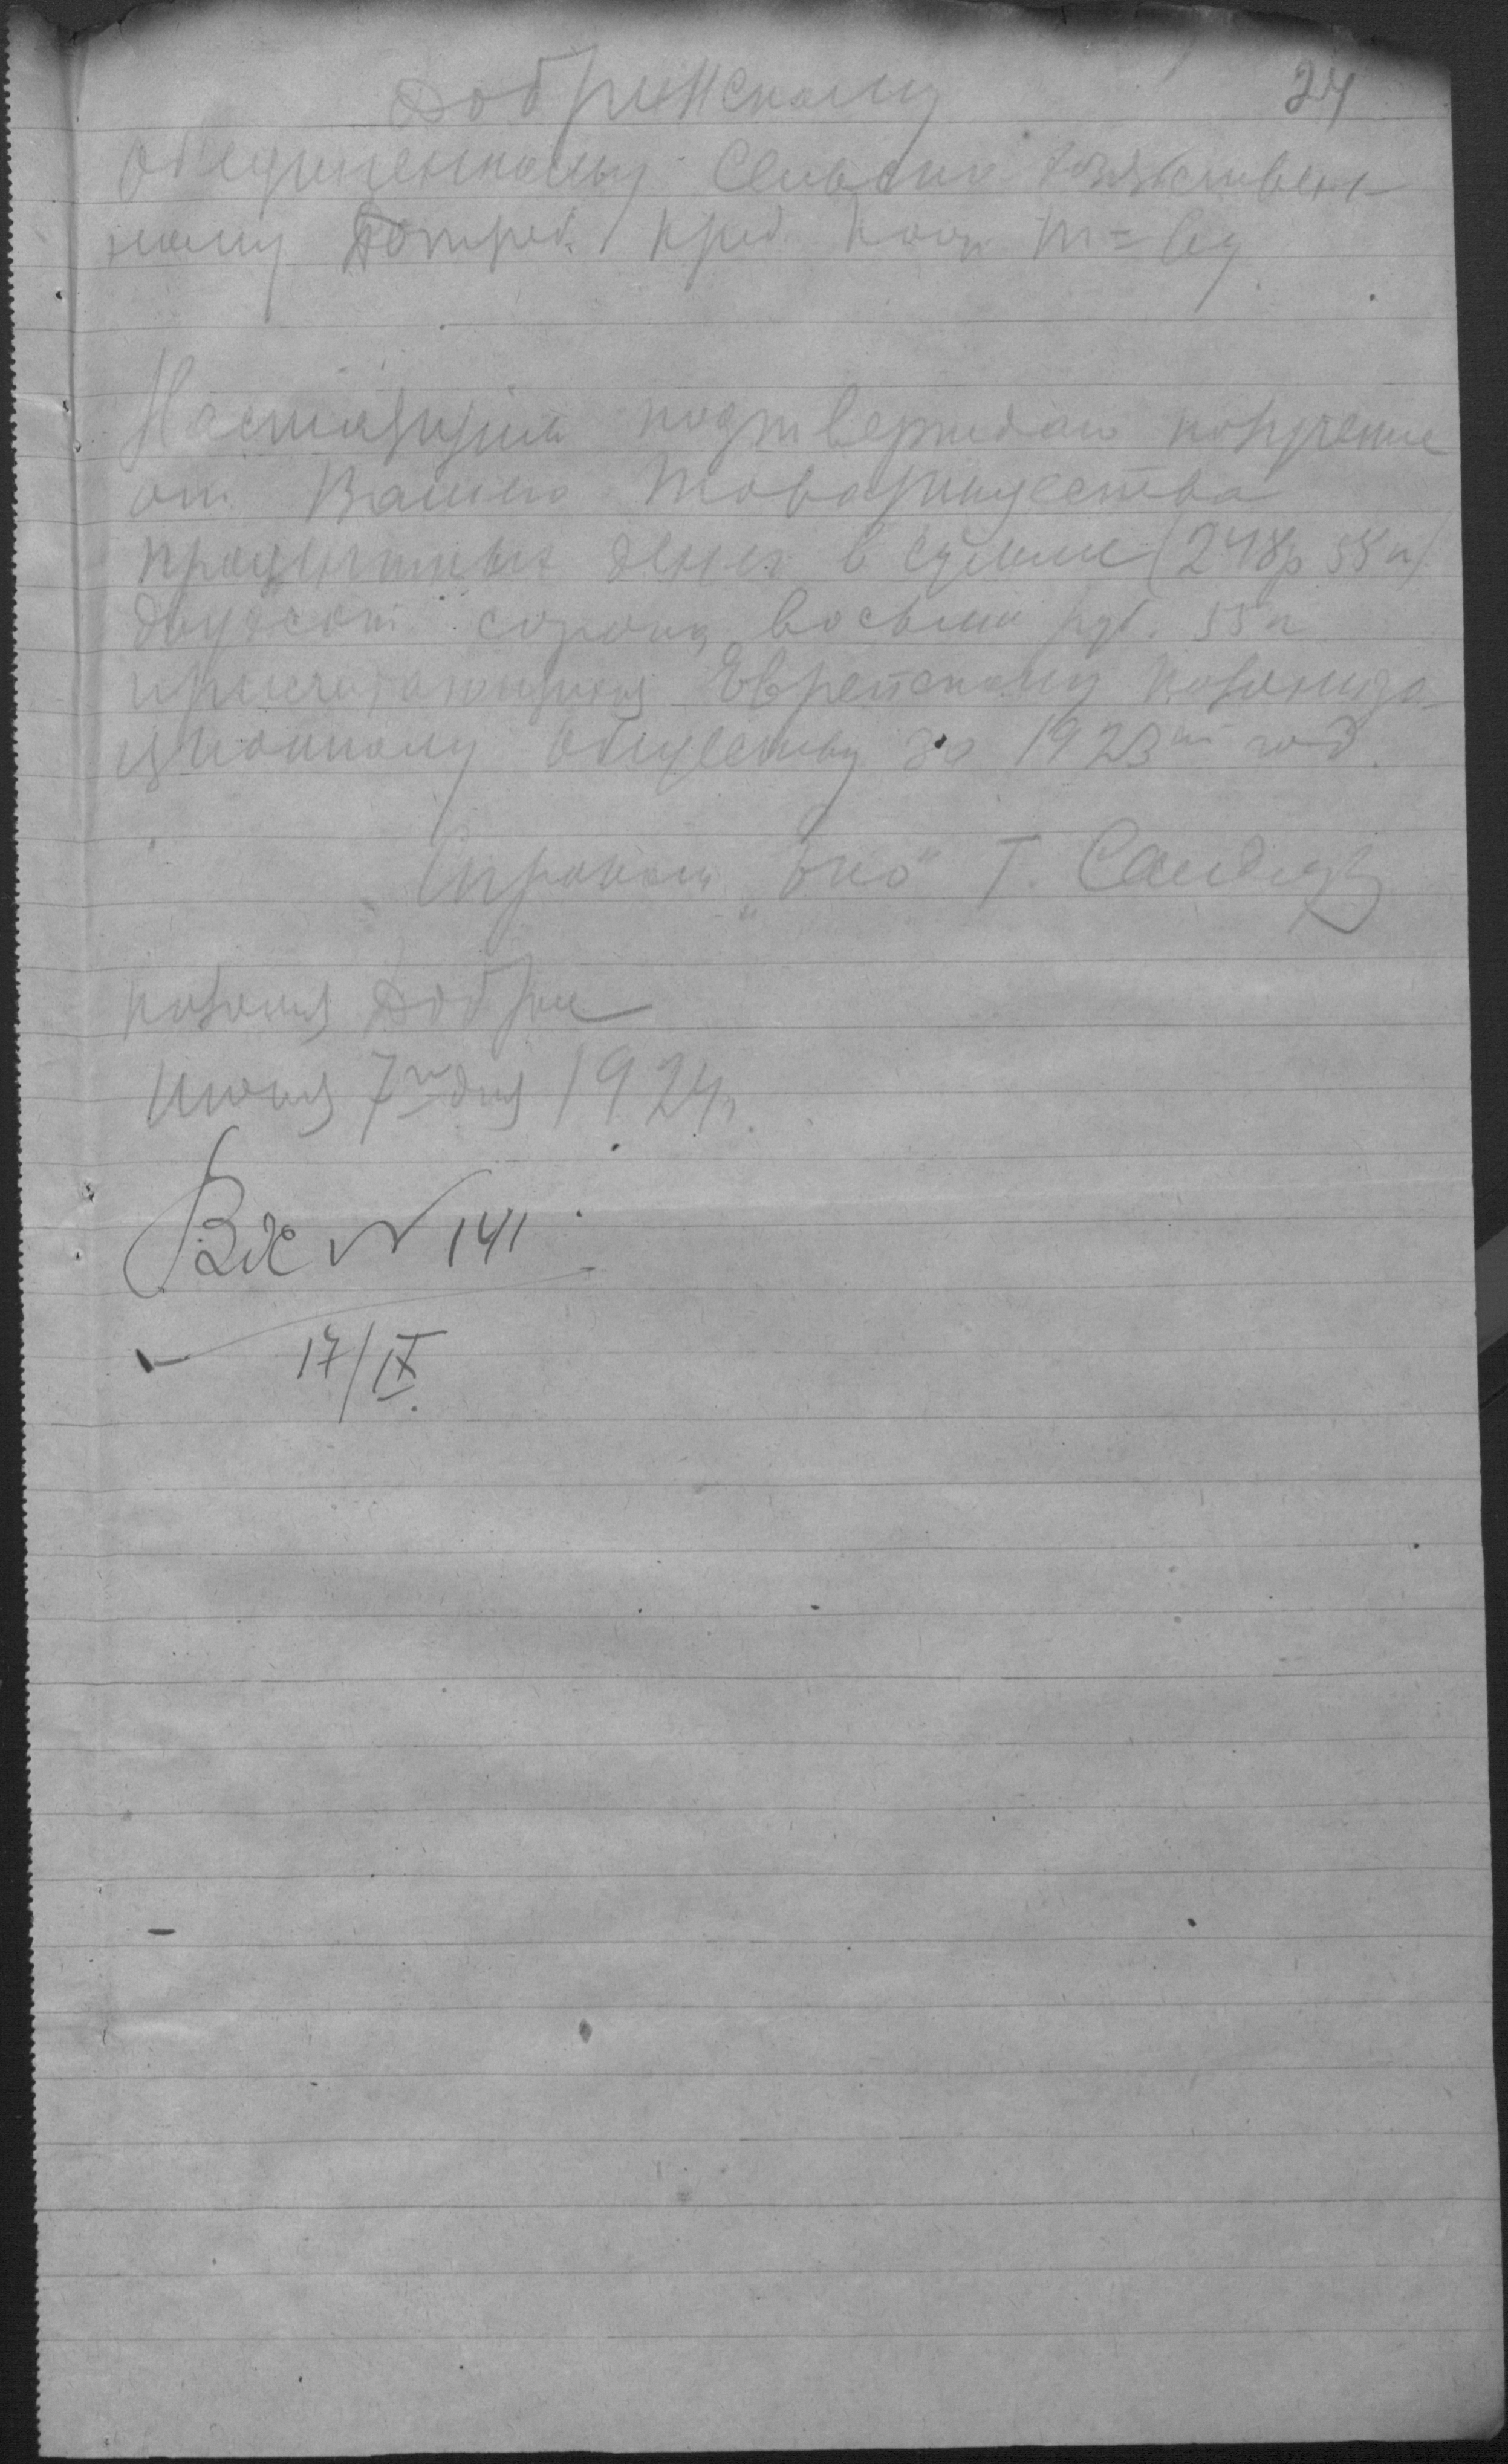 24
Добренскому
Обединенному Сельско Хозяйственн
ному Потреб. Кред. Кооп Т=ву
Настоящим подтверждаю получение
от Вашего Товарищества
процентных денег в сумме (248р 55к)
двухсот сорока восьми руб. 55к
причитающихся Еврейскому Колониза-
ционному обществу за 1923ий год.
Агроном "ЕКО" Г. Сандлер
колония Добрая
Июня 7го дня 1924г.
Вх N 141
17/IX.